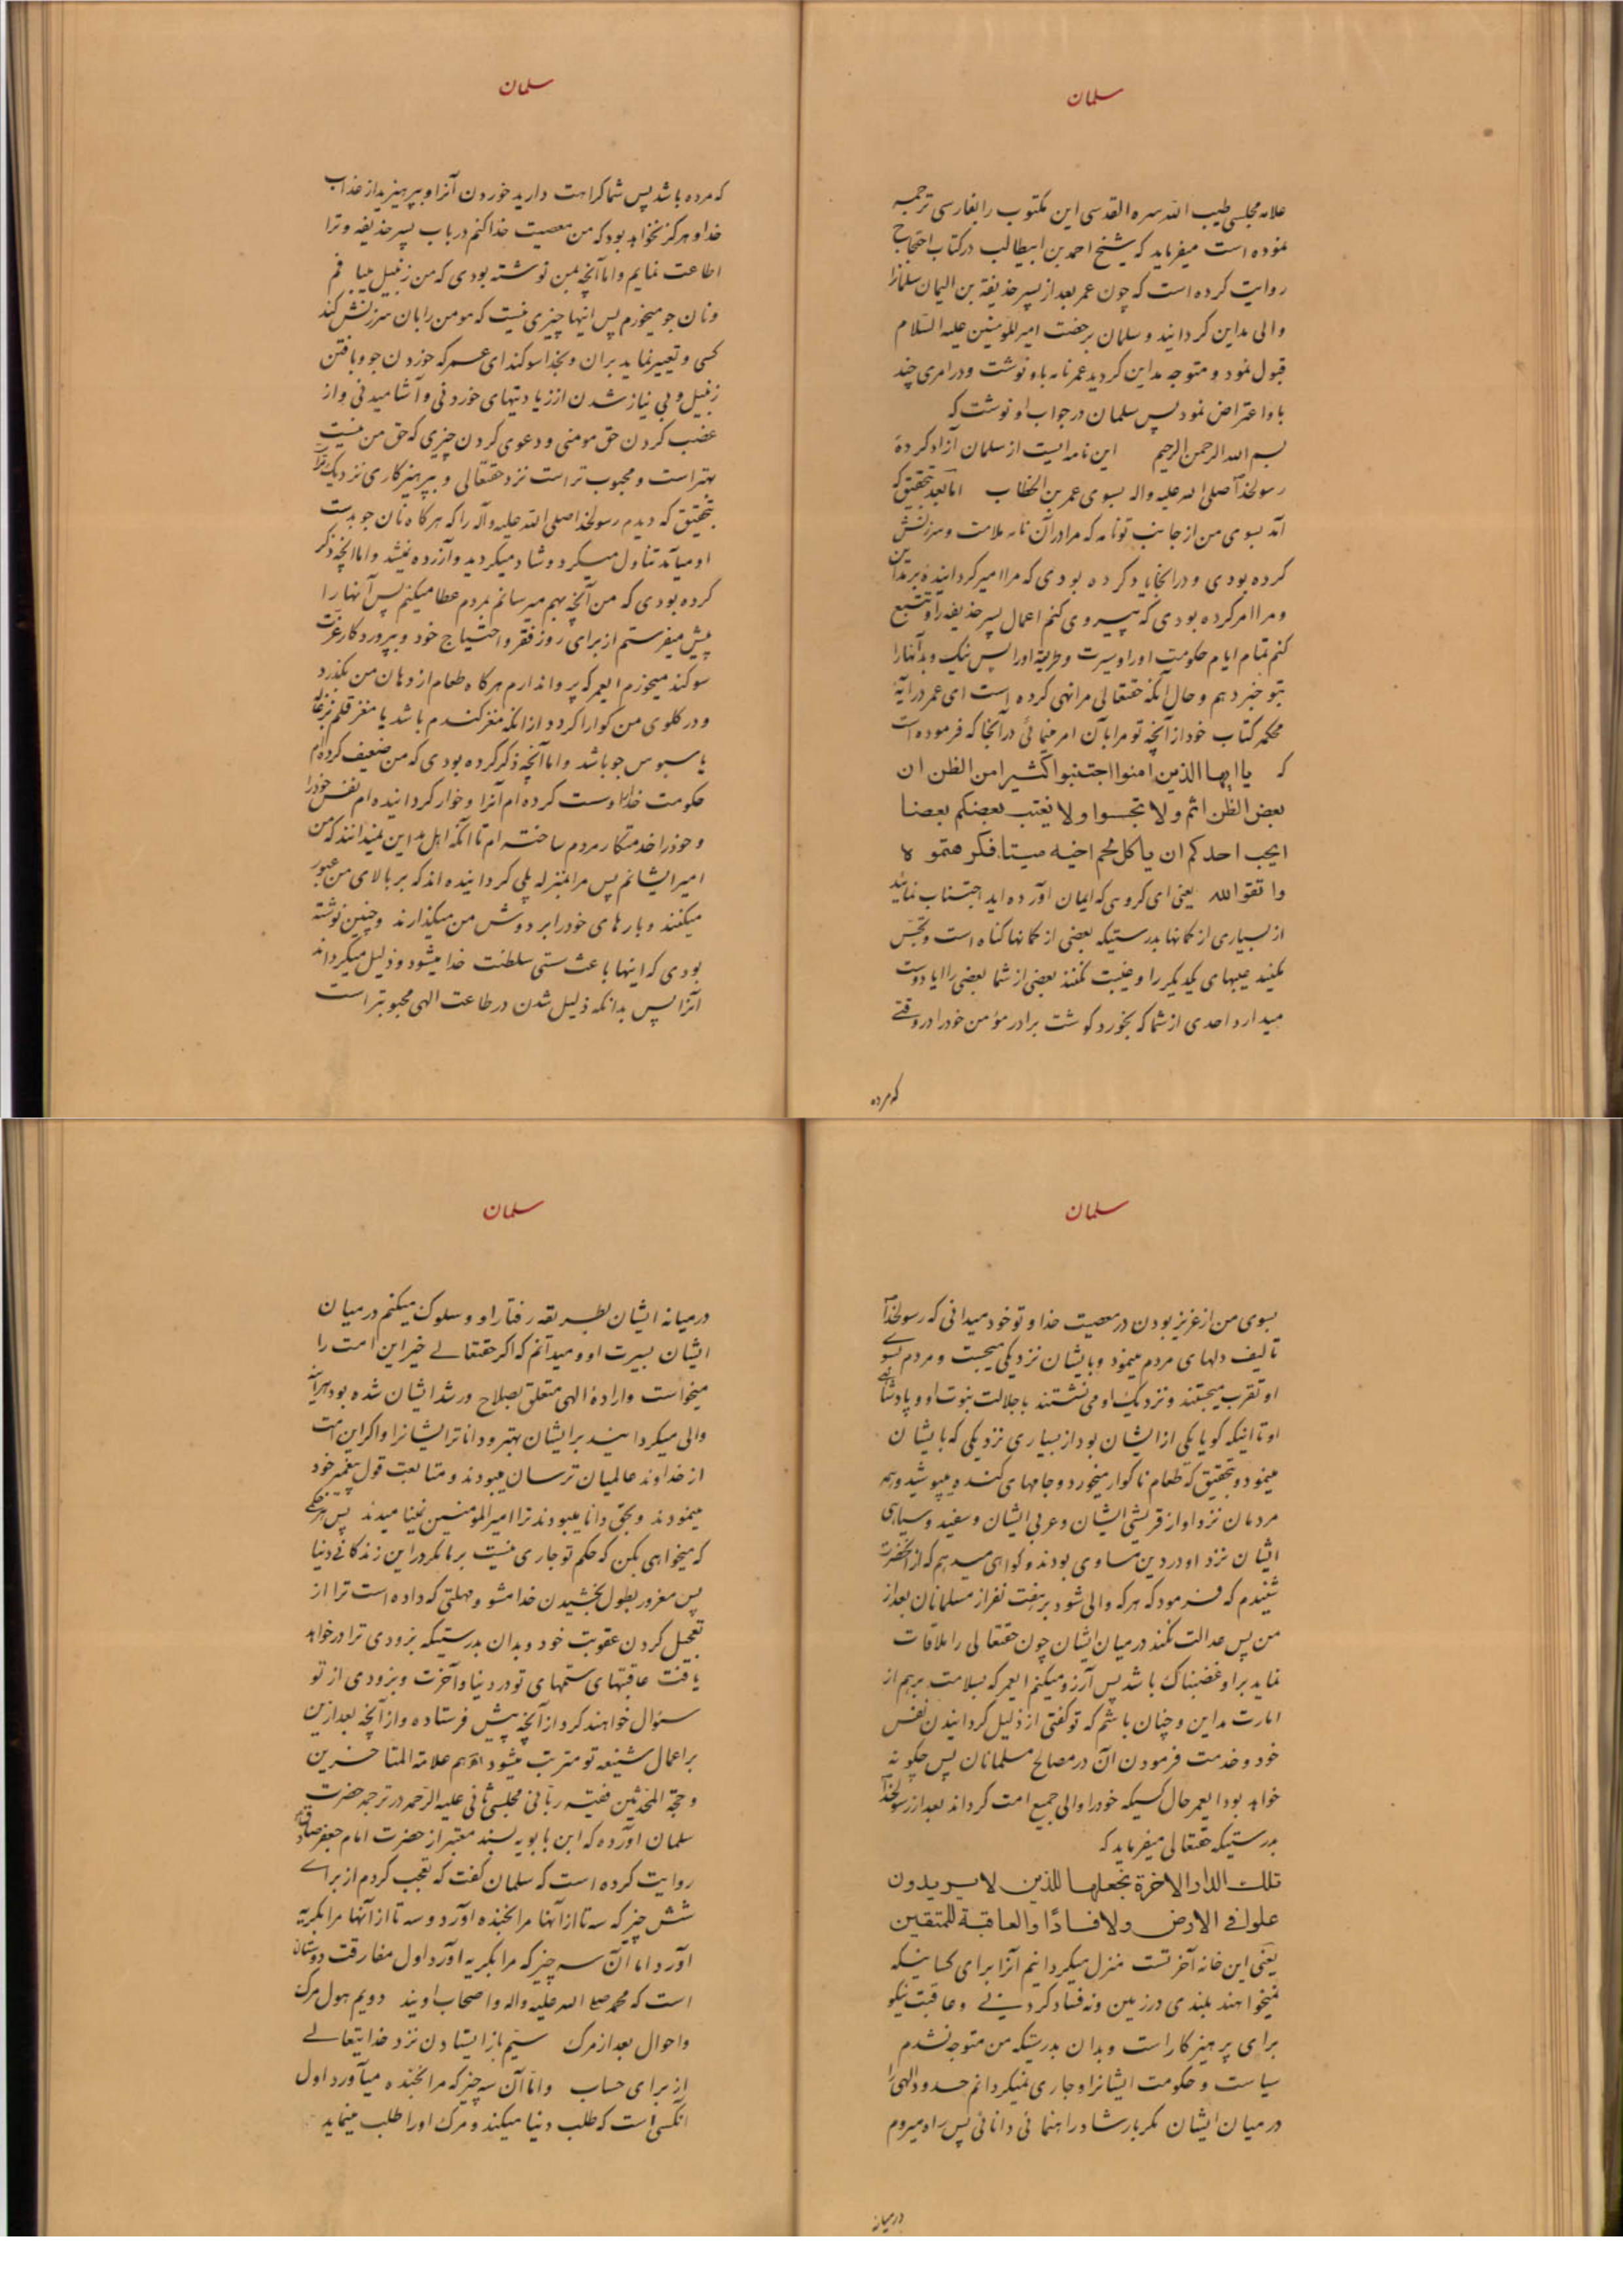 سلمان
علامه مجلسی طیب الله سره القدسی این مکتوب را بفارسی ترجمه
نموده است میفرماید که شیخ احمد بن ابیطالب در کتاب احتجاج
روایت کرده است که چون عمر بعد از پسر حذیفة بن الیمان سلمانرا
والی مداین کردانید و سلمان برخصت امیرالمؤمنین علیه السلام
قبول نمود و متوجه مداین کردید عمر نامه باو نوشت و در امری چند
باو اعتراض نمود پس سلمان در جواب او نوشت که
بسم الله الرحمن الرحیم این نامه ایست از سلمان آزاد کرده
رسولخدا صلی الله علیه واله بسوی عمر بن الخطاب اما بعد بتحقیق که
آمد بسوی من از جانب تو نامه که مرا در آن نامه ملامت و سرزنش
کرده بودی و در انجا یاد کرده بودی که مرا امیر کردانیدهٔ بر مداین
و مرا امر کرده بودی که پیروی کنم اعمال پسر حذیفه را و تتبع
کنم تمام ایام حکومت او را و سیرت و طریقهٔ او را پس نیک و بد آنها را
بتو خبر دهم و حال آنکه حقتعالی مرا نهی کرده است ای عمر در آیهٔ
محکم کتاب خود از آنچه تو مرا بآن امر مینمائی در آنجا که فرموده است
که یا ایها الذین امنوا اجتنبوا کثیرا من الظن ان
بعض الظن اثم ولا تجسوا ولا یغتب بعضکم بعضا
ایحب احدکم ان یاکل لحم اخیه میتا فکرهتموه
واتقوالله یعنی ای کروهی که ایمان آورده اید اجتناب نمائید
از بسیاری از کمانها بدرستیکه بعضی از کمانها کناه است و تجسس
مکنید عیبهای یکدیکر را و غیبت نکنند بعضی از شما بعضی را ایا دوست
میدارد احدی از شما که بخورد کوشت برادر مؤمن خود را در وقتی
که مرده
سلمان
که مرده باشد پس شما کراهت دارید خوردن آنرا و بپرهیزید از عذاب
خدا و هرکز نخواهد بود که من معصیت خدا کنم در باب پسر حذیفه و ترا
اطاعت نمایم واما آنچه بمن نوشته بودی که من زنبیل میبافم
و نان جو میخورم پس اینها چیزی نیست که مومن را بان سرزنش کند
کسی و تعییر نماید بران و بخدا سوکند ای عمر که خوردن جو و بافتن
زنبیل و بی نیاز شدن از زیادتیهای خوردنی و آشامیدنی و از
غضب کردن حق مومنی و دعوی کردن چیزی که حق من نیست
بهتر است و محبوب تر است نزد حقتعالی و بپرهیزکاری نزدیکتر
بتحقیق که دیدم رسولخدا صلی الله علیه وآله را که هرکاه نان جو بدست
او میآمد تناول میکرد و شاد میکردید و آزرده نمیشد و اما آنچه ذکر
کرده بودی که من آنچه بهم میرسانم بمردم عطا میکنم پس آنها را
پیش میفرستم از برای روز فقر و احتیاج خود و بپروردکار عزت
سوکند میخورم ایعمر که پروا ندارم هرکاه طعام از دهان من بکذرد
و در کلوی من کوارا کردد از انکه مغز کندم باشد یا مغز قلم بزغاله
یا سبوس جو باشد واما آنچه ذکر کرده بودی که من ضعیف کرده‌ام
حکومت خدا را و سست کرده ام آنرا و خوار کردانیده ام نفس خود را
و خود را خدمتکار مردم ساخته ام تا آنکه اهل مداین نمیدانند که من
امیر ایشانم پس مرا بمنزله پلی کردانیده اند که بر بالای من عبور
میکنند و بارهای خود را بر دوش من میکذارند و چنین نوشته
بودی که اینها باعث سستی سلطنت خدا میشود و ذلیل میکرداند
آنرا پس بدانکه ذلیل شدن در طاعت الهی محبوبتر است
سلمان
بسوی من از عزیز بودن در معصیت خدا و تو خود میدانی که رسولخدا
تالیف دلهای مردم مینمود و بایشان نزدیکی میجست و مردم بسوی
او تقرب میجستند و نزدیک او می نشستند با جلالت نبوت او و پادشاهی
او تا اینکه کویا یکی از ایشان بود از بسیاری نزدیکی که بایشان
مینمود و بتحقیق که طعام ناکوار میخورد و جامهای کنده میپوشید و همه
مردمان نزد او از قریشی ایشان و عربی ایشان و سفید و سیاهی
ایشان نزد او در دین مساوی بودند و کواهی میدهم که از آنحضرت
شنیدم که فرمود که هرکه والی شود بر هفت نفر از مسلمانان بعد از
من پس عدالت نکند در میان ایشان چون حقتعالی را ملاقات
نماید بر او غضبناک باشد پس آرزو میکنم ایعمر که بسلامت برهم از
امارت مداین و چنان باشم که تو کفتی از ذلیل کردانیدن نفس
خود و خدمت فرمودن آن در مصالح مسلمانان پس چکونه
خواهد بود ایعمر حال کسیکه خود را والی جمیع امت کرداند بعد از رسولخدا
بدرستیکه حقتعالی میفرماید که
تلک الدار الاخرة نجعلها للذین لا یریدون
علوا فی الارض ولا فسادًا والعاقبة للمتقین
یعنی این خانه آخرتست منزل میکردانیم آنرا برای کسانیکه
نمیخواهند بلندی در زمین و نه فساد کردنی و عاقبت نیکو
برای پرهیزکار است و بدان بدرستیکه من متوجه نشدم
سیاست و حکومت ایشانرا و جاری نمیکردانم حدود الهی را
در میان ایشان مکر بارشاد و راهنمائی دانائی پس راه میروم
در میانه
سلمان
در میانه ایشان بطریقه رفتار او و سلوک میکنم در میان
ایشان بسیرت او و میدانم که اکر حقتعالی خیر این امت را
میخواست و ارادهٔ الهی متعلق بصلاح و رشد ایشان شده بود هرآینه
والی میکردانید بر ایشان بهتر و داناتر ایشانرا و اکر این امت
از خداوند عالمیان ترسان میبودند و متابعت قول پیغمبر خود
مینمودند و بحق دانا میبودند ترا امیرالمؤمنین نمینامیدند پس هر حکمی
که میخواهی بکن که حکم تو جاری نیست بر ما مکر در این زندکانی دنیا
پس مغرور بطول بخشیدن خدا مشو و مهلتی که داده است ترا از
تعجیل کردن عقوبت خود و بدان بدرستیکه بزودی ترا در خواهد
یافت عاقبتهای ستمهای تو در دنیا و آخرت و بزودی از تو
سؤال خواهند کرد از آنچه پیش فرستاده و از آنچه بعد ازین
بر اعمال شنیعه تو مترتب میشود علامة المتاخرین
و حجة المحدثین فقیه ربانی مجلسی ثانی علیه الرحمه در ترجمه حضرت
سلمان آورده که ابن بابویه بسند معتبر از حضرت امام جعفر صادق
روایت کرده است که سلمان کفت که تعجب کردم از برای
شش چیز که سه تا از آنها مرا بخنده آورد و سه تا از آنها مرا بکریه
آورد اما آن سه چیز که مرا بکریه آورد اول مفارقت دوستان
است که محمد صلی الله علیه واله واصحاب اویند دویم هول مرک
واحوال بعد از مرک سیّم باز ایستادن نزد خدایتعالی
از برای حساب واما آن سه چیز که مرا بخنده میآورد اول
آنکسی است که طلب دنیا میکند و مرک او را طلب مینماید